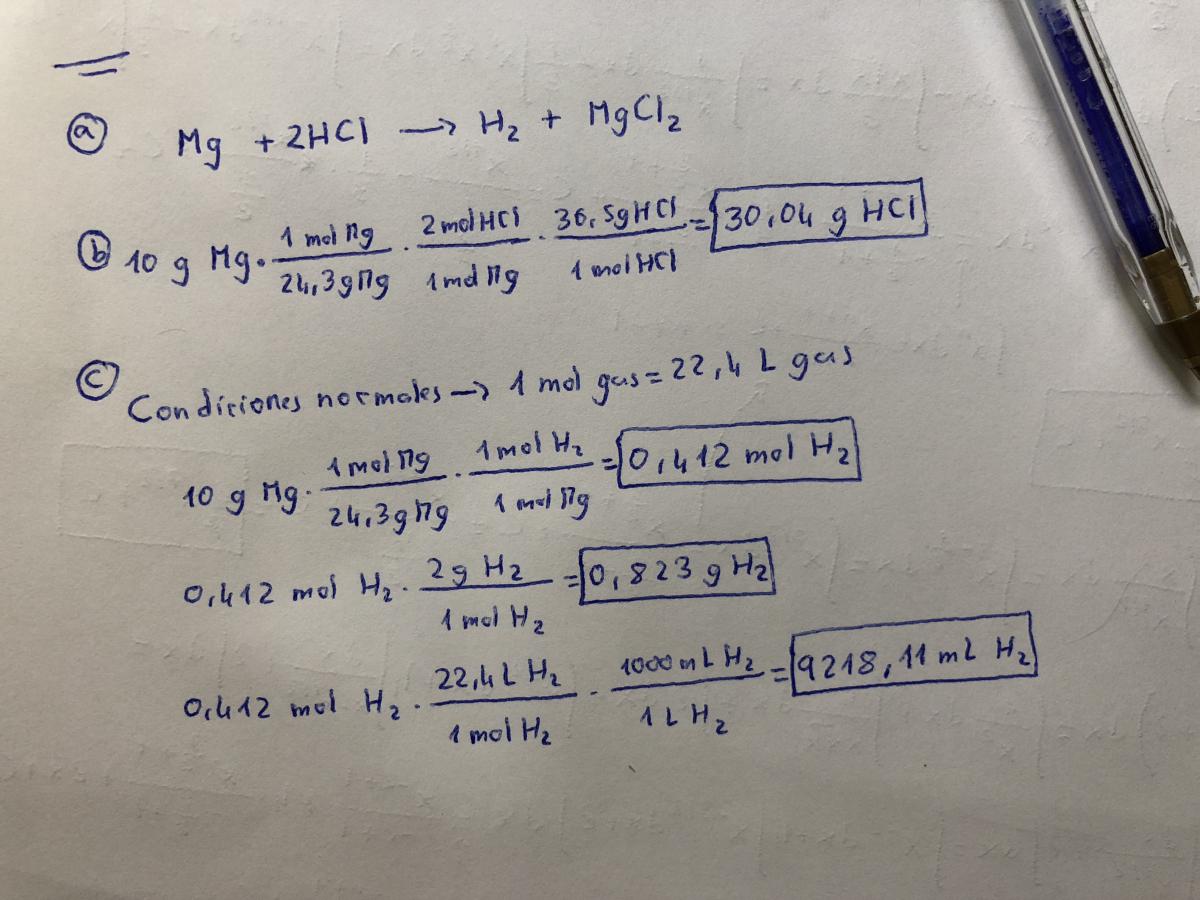 a) Mg + 2HCl → H₂ + MgCl₂
b) 10 g Mg · 1 mol Mg / 24,3 g Mg · 2 mol HCl / 1 mol Mg · 36,5 g HCl / 1 mol HCl = 30,04 g HCl
c) Condiciones normales → 1 mol gas = 22,4 L gas
10 g Mg · 1 mol Mg / 24,3 g Mg · 1 mol H₂ / 1 mol Mg = 0,412 mol H₂
0,412 mol H₂ · 2 g H₂ / 1 mol H₂ = 0,823 g H₂
0,412 mol H₂ · 22,4 L H₂ / 1 mol H₂ · 1000 mL H₂ / 1 L H₂ = 9218,11 mL H₂